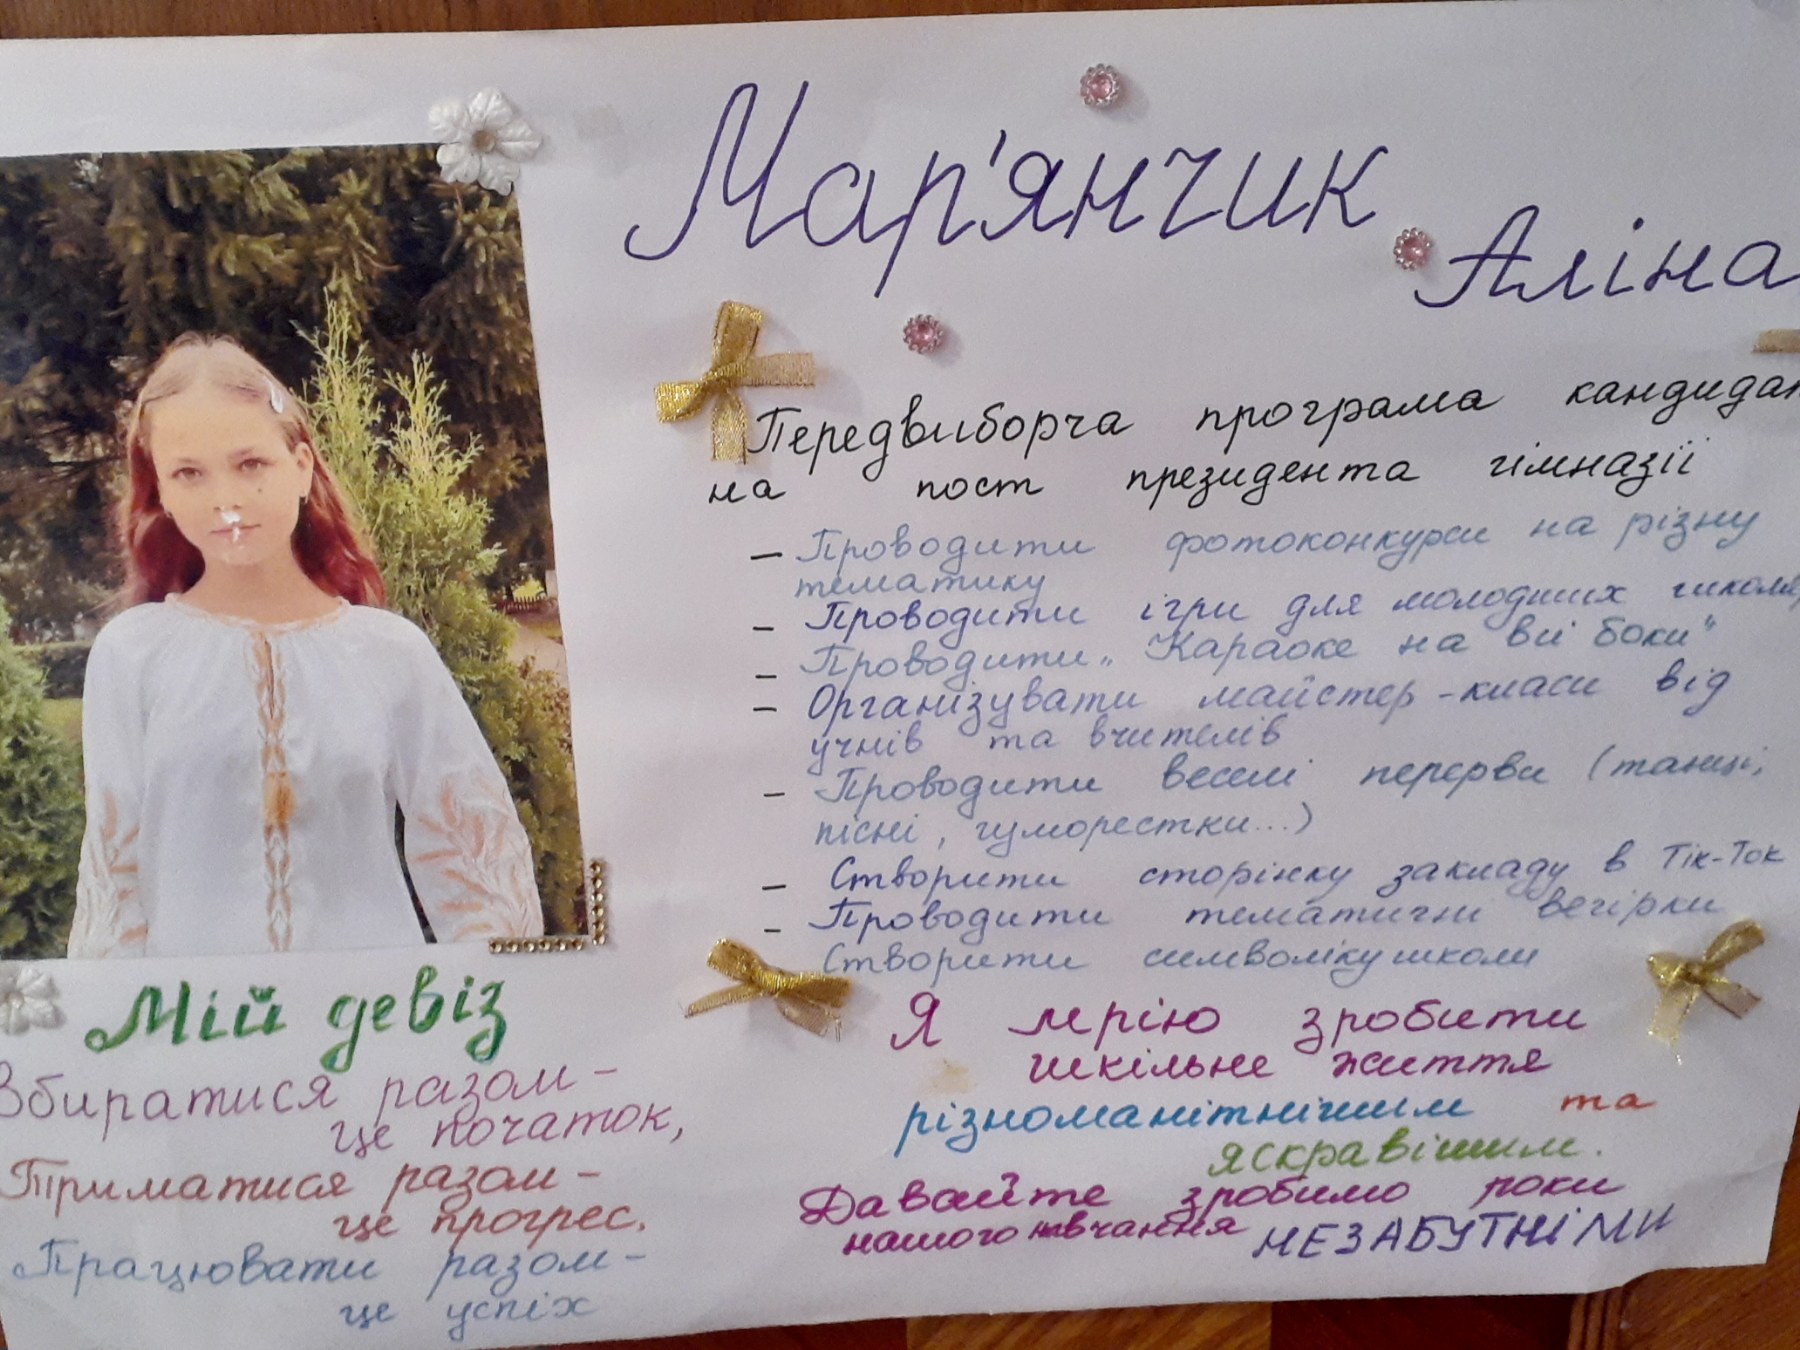 Мар'янчик
Аліна
Передвиборча програма кандидат
на пост президента гімназії
– Проводити фотоконкурси на різну
тематику
– Проводити ігри для молодших школяр
– Проводити „Караоке на всі боки"
– Організувати майстер-класи від
учнів та вчителів
– Проводити веселі перерви (танці,
пісні, гуморестки...)
– Створити сторінку закладу в Тік-Ток
– Проводити тематичні вечірки
Створити символіку школи
Я мрію зробити
шкільне життя
різноманітнішим та
яскравішим.
Давайте зробимо роки
нашого навчання НЕЗАБУТНІМИ
Мій девіз
Збиратися разом –
це початок,
Триматися разом –
це прогрес.
Працювати разом –
це успіх